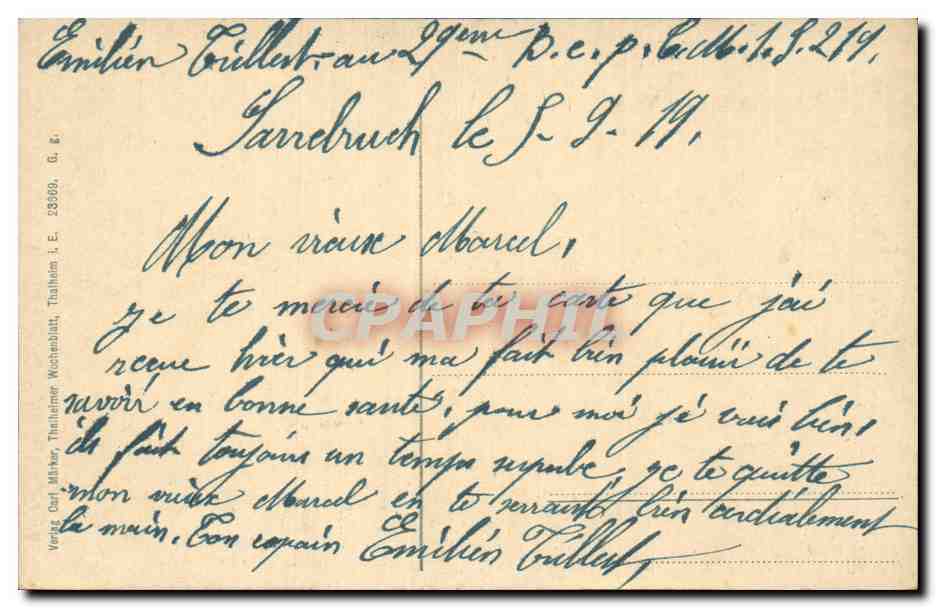 Emilien Tillest au 29eme D.c.p. C.M.1.S.219.
Sarrebruch le 5-9-19.
Mon vieux Marcel,
je te mercie de ta carte que j'ai
reçue hier qui ma fait bien plaisir de te
savoir en bonne santé, pour moi je vais bien,
ils fait toujour un temps superbe, je te quitte
mon vieux Marcel en te serrant bien cordialement
la main. Ton copain Emilien Tillest,
Verlag Carl Märker, Thalheimer Wochenblatt, Thalheim i. E. 23669. G. g.
CPAPHIL